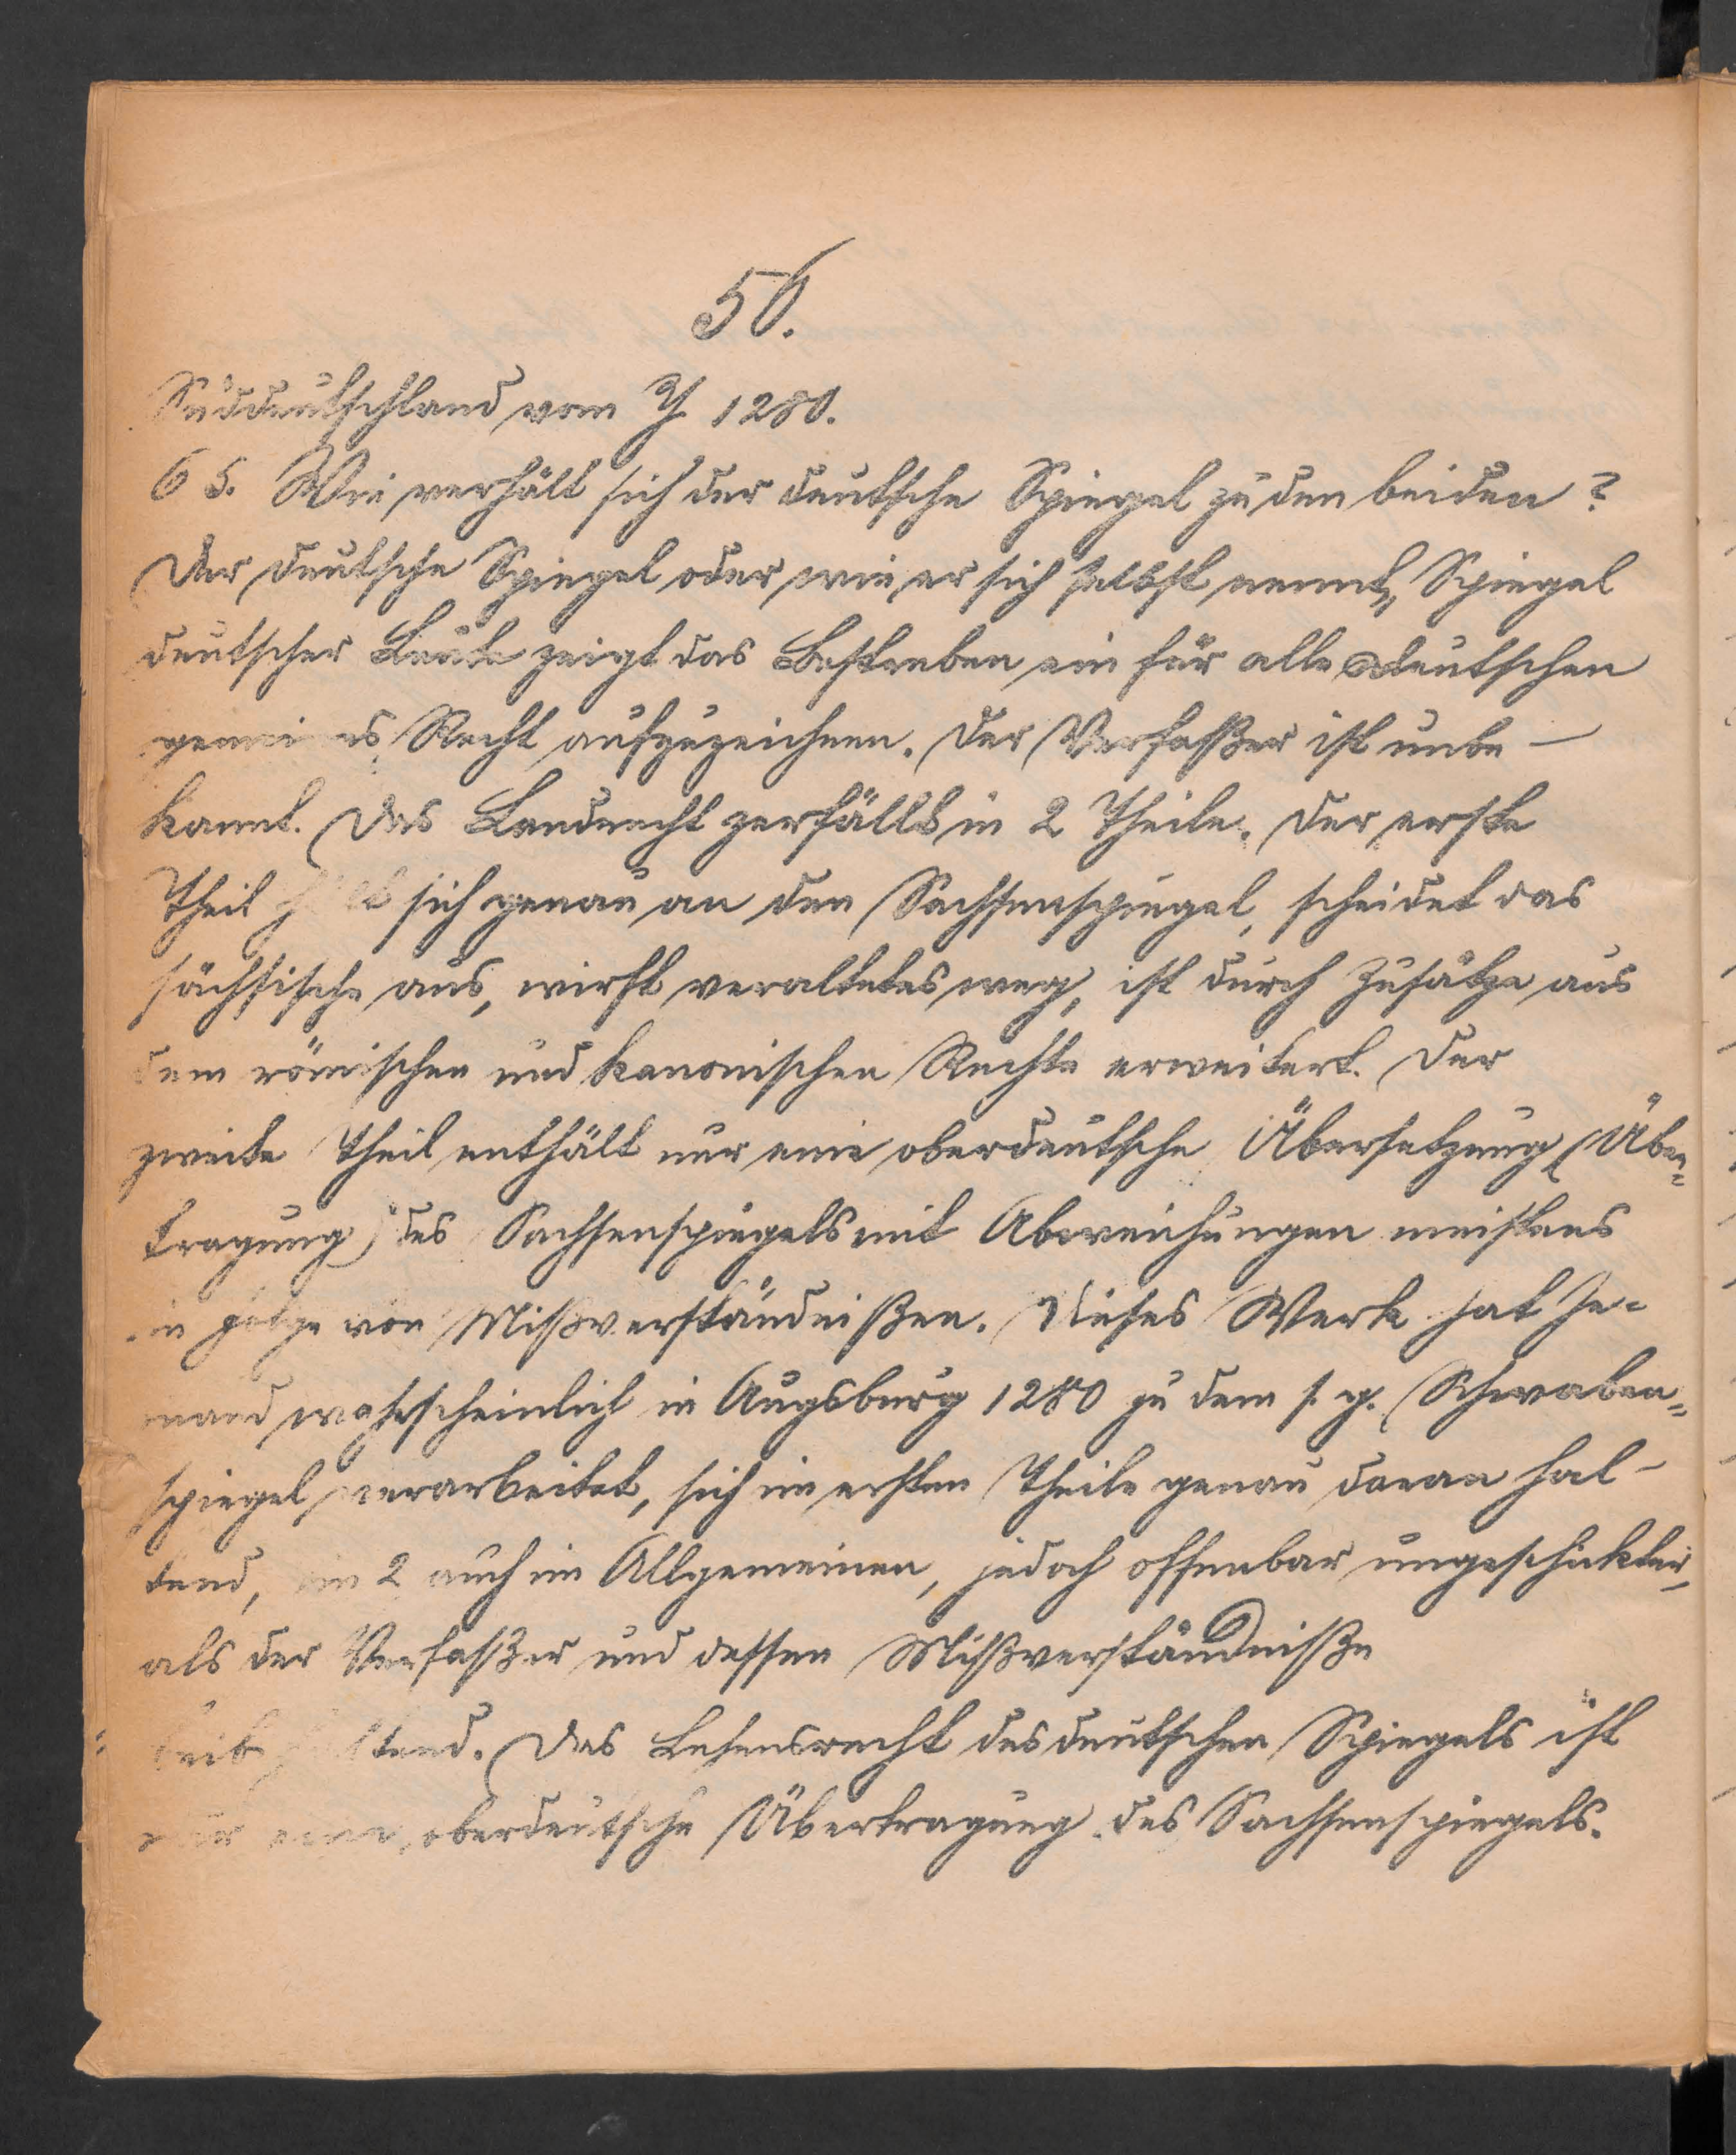 56.
Süddeutschland vom J. 1280.
65. Wie verhält sich der deutsche Spiegel zu den beiden?
Der deutsche Spiegel oder wie er sich selbst nennt „Spiegel
deutscher Leute zeigt das Bestreben ein für alle Deutschen
gemeines Recht aufzuzeichnen. Der Verfaßer ist unbe-
kannt. Das Landrecht zerfällt in 2 Theile. Der erste
Theil hält sich genau an den Sachsenspiegel, scheidet das
sächsische aus, wirft veraltetes weg, ist durch Zusätze aus
dem römischen und kanonischen Rechte erweitert. Der
zweite Theil enthält nur eine oberdeutsche Übersetzung (Über=
tragung) des Sachsenspiegels mit Abweichungen meistens
in Folge von Mißverständnißen. Dieses Werk hat Je=
mand wahrscheinlich in Augsburg 1280 zu dem s. g. Schwaben=
spiegel verarbeitet, sich im ersten Theile genau daran hal-
tend, im 2 auch im Allgemeinen, jedoch offenbar ungeschickter,
als der Verfaßer und dessen Mißverständniße
beibehaltend. Das Lehensrecht des deutschen Spiegels ist
nur eine oberdeutsche Übertragung des Sachsenspiegels.